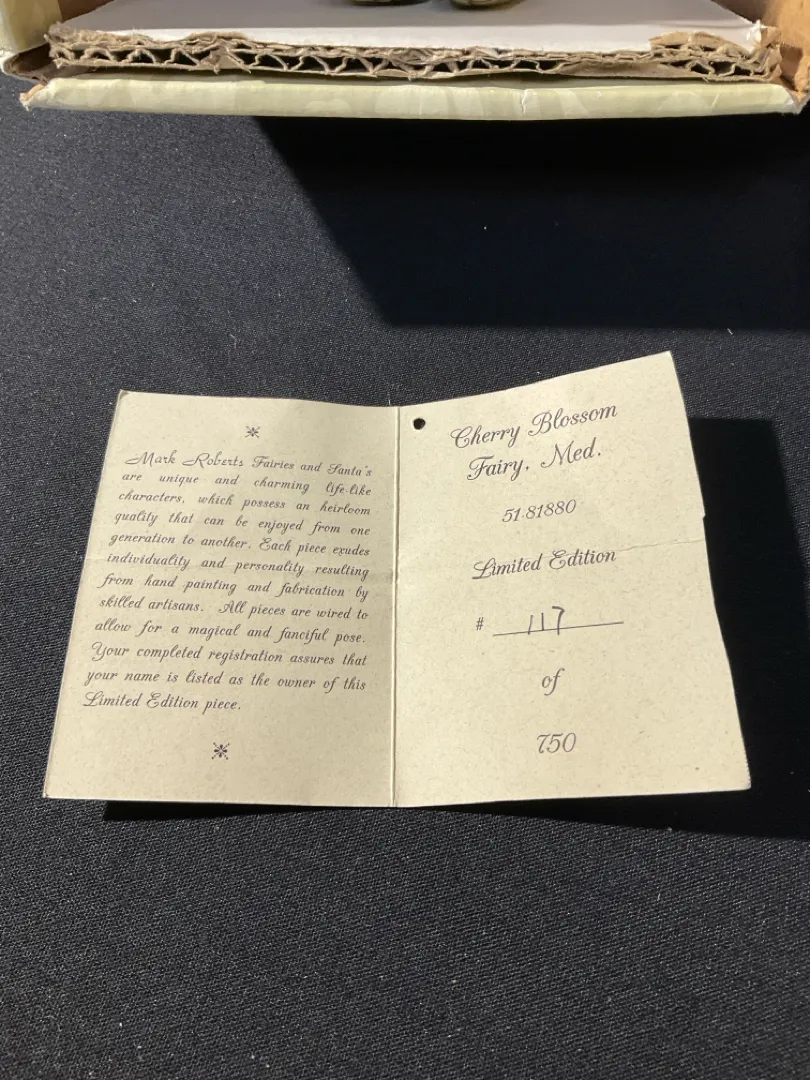 Mark Roberts Fairies and Santa's
are unique and charming life-like
characters, which possess an heirloom
quality that can be enjoyed from one
generation to another. Each piece exudes
individuality and personality resulting
from hand painting and fabrication by
skilled artisans. All pieces are wired to
allow for a magical and fanciful pose.
Your completed registration assures that
your name is listed as the owner of this
Limited Edition piece.
Cherry Blossom
Fairy, Med.
51-81880
Limited Edition
# 117
of
750